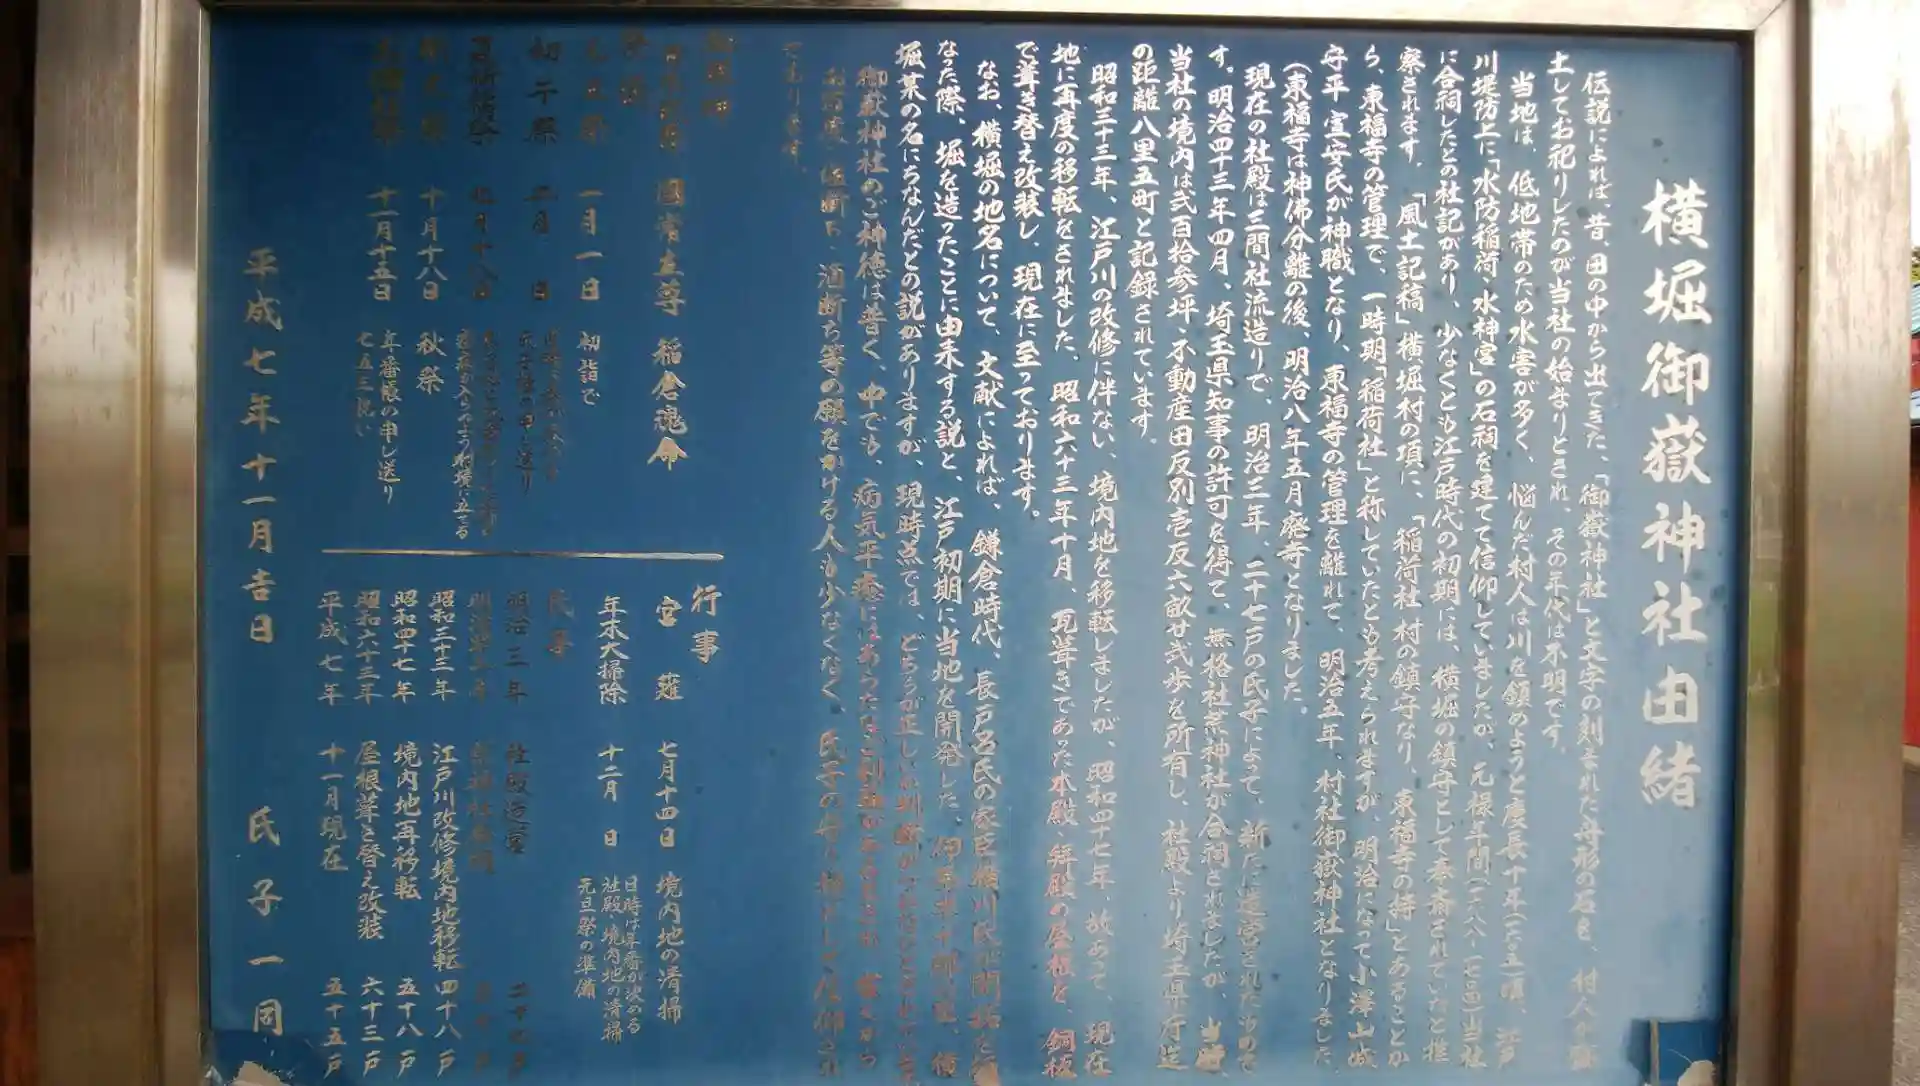 横堀御嶽神社由緒
伝説によれば、昔、田の中から出てきた、「御嶽神社」と文字の刻まれた舟形の石を、村人が
土してお祀りしたのが当社の始まりとされ、その年代は不明です。
当地は、低地帯のため水害が多く、悩んだ村人は川を鎮めようと慶長十年(一六〇五)頃、江戸
川堤防上に「水防稲荷、水神宮」の石祠を建てて信仰していましたが、元禄年間(一六八八ー一七〇四)当社
に合祠したとの社記があり、少なくとも江戸時代の初期には、横堀の鎮守として奉斎されていたと推
察されます。「風土記稿」横堀村の項に、「稲荷社 村の鎮守なり、東福寺の持」とあることか
ら、東福寺の管理で、一時期「稲荷社」と称していたとも考えられますが、明治になって小澤山城
守平宣安氏が神職となり、東福寺の管理を離れて、明治五年、村社御嶽神社となりました。
(東福寺は神佛分離の後、明治八年五月廃寺となりました。
現在の社殿は三間社流造りで、明治三年、二十七戸の氏子によって、新たに造営されたもので
す。明治四十三年四月、埼玉県知事の許可を得て、無格社黒神社が合祠されましたが、当時、
当社の境内は弐百拾参坪、不動産田反別壱反六畝廿弐歩を所有し、社殿より埼玉県庁迄
の距離八里五町と記録されています。
昭和三十三年、江戸川の改修に伴ない、境内地を移転しましたが、昭和四十七年、故あって、現在
地に再度の移転をされました。昭和六十三年十月、瓦葺きであった本殿・拝殿の屋根を、銅板
で葺き替え改装し、現在に至っております。
なお、横堀の地名について、文献によれば、鎌倉時代、長戸呂氏の家臣横川氏が開拓
なった際、堀を造ったことに由来する説と、江戸初期に当地を開発した、横
堀某の名にちなんだとの説がありますが、現時点では、どちらが正しいか判断
御嶽神社のご神徳は普く、中でも、病気平癒にはあらたかな御利益がある
お百度、塩断ち、酒断ち等の願をかける人も少なくなく、氏子の守り神として信仰され
ております。
御祭神
國常立尊 稲倉魂命
祭儀
元旦祭 一月一日 初詣で
初午祭 二月 日
七月十八日
境に立てる
十月十八日 秋祭
十一月十五日 年番帳の申し送り
七五三祝い
行事
宮薙 七月十四日 境内地の清掃
年末大掃除 十二月 日 日時は年番が決める
社殿・境内地の清掃
元旦祭の準備
氏子
明治三年 社殿造営 二十七戸
昭和三十三年 江戸川改修境内地移転 四十八戸
昭和四十七年 境内地再移転 五十八戸
昭和六十三年 屋根葺き替え改装 六十三戸
平成七年 十一月現在 五十五戸
平成七年十一月吉日 氏子一同